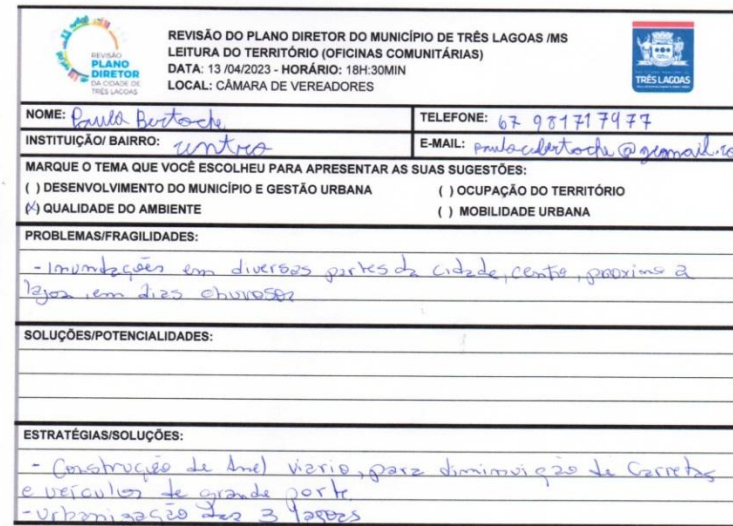 REVISÃO
PLANO
DIRETOR
DA CIDADE DE
TRÊS LAGOAS
REVISÃO DO PLANO DIRETOR DO MUNICÍPIO DE TRÊS LAGOAS /MS
LEITURA DO TERRITÓRIO (OFICINAS COMUNITÁRIAS)
DATA: 13 /04/2023 - HORÁRIO: 18H:30MIN
LOCAL: CÂMARA DE VEREADORES
TRÊS LAGOAS
NOME: Paula Bertoche
TELEFONE: 67 981717977
INSTITUIÇÃO/ BAIRRO: centro
E-MAIL: @gmail.co
MARQUE O TEMA QUE VOCÊ ESCOLHEU PARA APRESENTAR AS SUAS SUGESTÕES:
( ) DESENVOLVIMENTO DO MUNICÍPIO E GESTÃO URBANA ( ) OCUPAÇÃO DO TERRITÓRIO
(X) QUALIDADE DO AMBIENTE ( ) MOBILIDADE URBANA
PROBLEMAS/FRAGILIDADES:
- Inundações em diversas partes da cidade, centro, proximo a
lagoa, em dias chuvosos
SOLUÇÕES/POTENCIALIDADES:
ESTRATÉGIAS/SOLUÇÕES:
- Construção de Anel viario, para diminuição de Carretas
e veículos de grande porte
- Urbanização das 3 lagoas